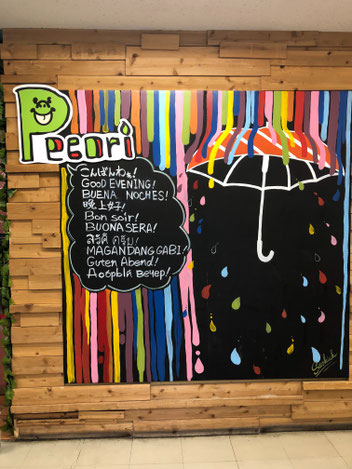 Peeori
こんばんわぁ!
GOOD EVENING!
BUENA NOCHES!
晚上好!
Bon soir!
BUONA SERA!
สวัสดี ครับ!
MAGANDANG GABI!
Guten Abend!
Добрый вечер!